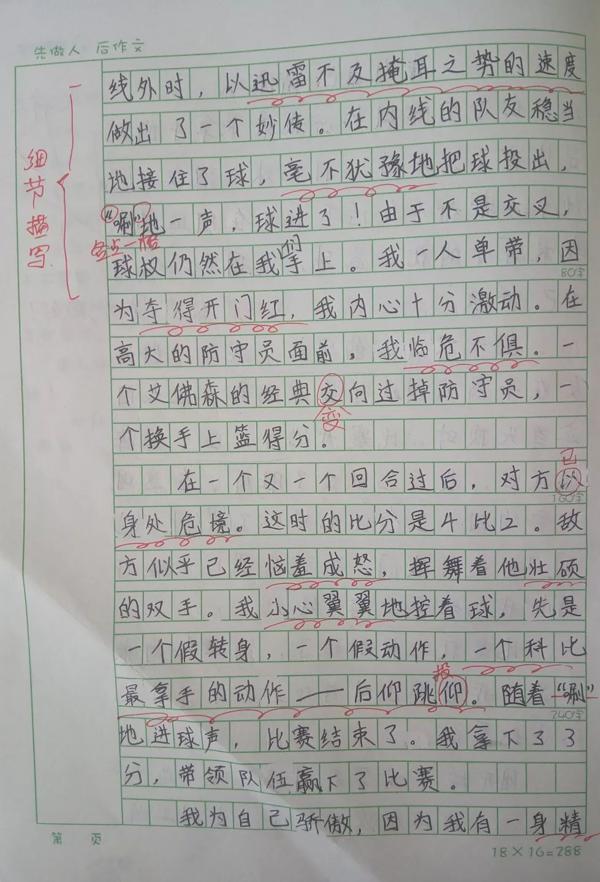 先做人 后作文
线外时，以迅雷不及掩耳之势的速度
做出了一个妙传。在内线的队友稳当
地接住了球，毫不犹豫地把球投出，
“唰”地一声，球进了！由于不是交叉，
球权仍然在我们手上。我一人单带，因
80字
为夺得开门红，我内心十分激动。在
高大的防守员面前，我临危不俱。一
个艾佛森的经典交向过掉防守员，一
变
个换手上篮得分。
已
在一个又一个回合过后，对方以
160字
身处危境。这时的比分是4比2。敌
方似乎已经恼羞成怒，挥舞着他壮硕
的双手。我小心翼翼地控着球，先是
一个假转身，一个假动作，一个科比
投
最拿手的动作——后仰跳仰。随着“唰”
240字
地进球声，比赛结束了。我拿下了3
分，带领队伍赢下了比赛。
我为自己骄傲，因为我有一身精
细节描写
第 页
18×16=288